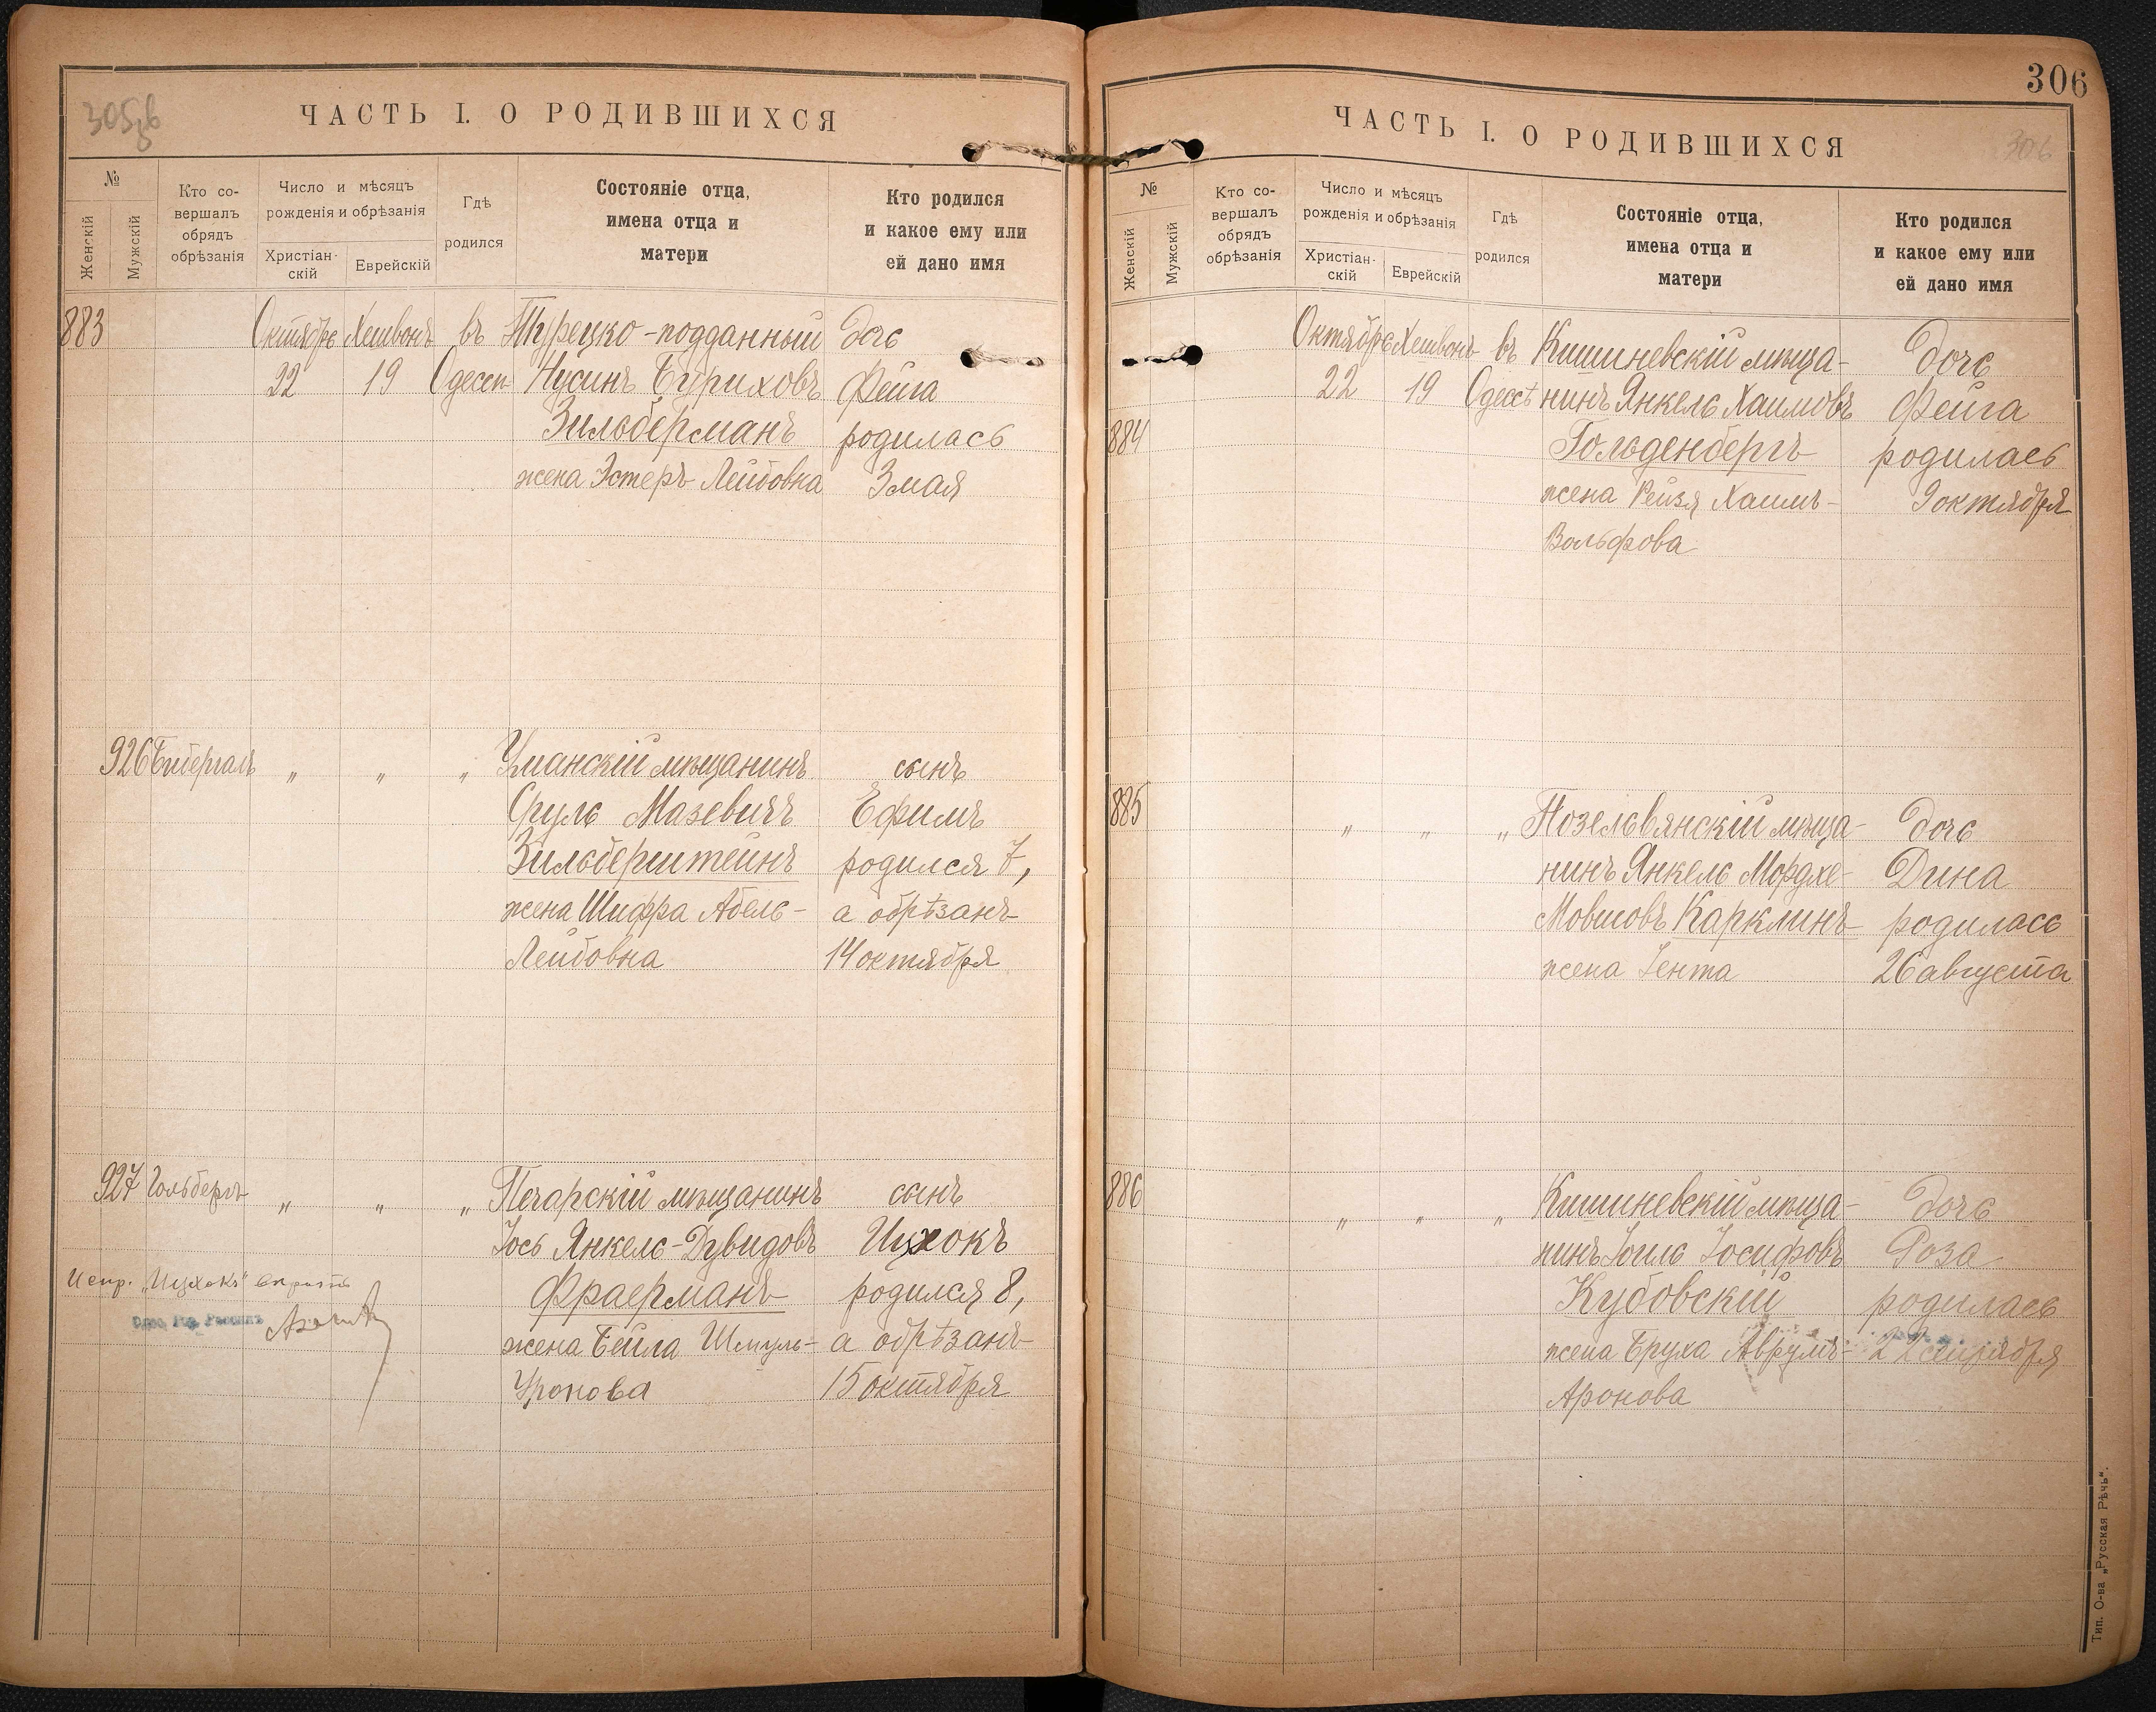 305зв
ЧАСТЬ I. О РОДИВШИХСЯ
№
Женскій
Мужскій
Кто со-
вершалъ
обрядъ
обрѣзанія
Число и мѣсяцъ
рожденія и обрѣзанія
Христіан-
скій
Еврейскій
Гдѣ
родился
Состояніе отца,
имена отца и
матери
Кто родился
и какое ему или
ей дано имя
883 Октябрь Хешвонъ въ Турецко-подданный дочь
22 19 Одессѣ Нусинъ Буриховъ Фейга
Зильберманъ родилась
жена Эстеръ Лейбовна 3 мая
926 Бибергалъ " " " Уманскій мѣщанинъ сынъ
Сруль Мазевичъ Ефимъ
Зильберштейнъ родился 7,
жена Шифра Абель- а обрѣзанъ
Лейбовна 14 октября
927 Гольбергъ " " " Печарскій мѣщанинъ сынъ
Іось Янкель-Дувидовъ Ицхокъ
Испр. „Ицхокъ" вѣрить
Фраерманъ родился 8,
Одес. Гор. Раввинъ
жена Бейла Шмуль- а обрѣзанъ
Уронова 15 октября
306
306
ЧАСТЬ I. О РОДИВШИХСЯ
№
Женскій
Мужскій
Кто со-
вершалъ
обрядъ
обрѣзанія
Число и мѣсяцъ
рожденія и обрѣзанія
Христіан-
скій
Еврейскій
Гдѣ
родился
Состояніе отца,
имена отца и
матери
Кто родился
и какое ему или
ей дано имя
Октябрь Хешвонъ въ Кишиневскій мѣща- дочь
22 19 Одессѣ нинъ Янкель Хаимовъ Фейга
884 Гольденбергъ родилась
жена Рейзя Хаимъ- 9 октября
Вольфова
885 " " " Позельвянскій мѣща- дочь
нинъ Янкель Мордхе- Дина
Мовшовъ Карклинъ родилась
жена Іента 26 августа
886 " " " Кишиневскій мѣща- дочь
нинъ Іоиль Іосифовъ Роза
Кубовскій родилась
жена Бруха Аврумъ- 22 сентября
Аронова
Тип. О-ва „Русская Рѣчь".